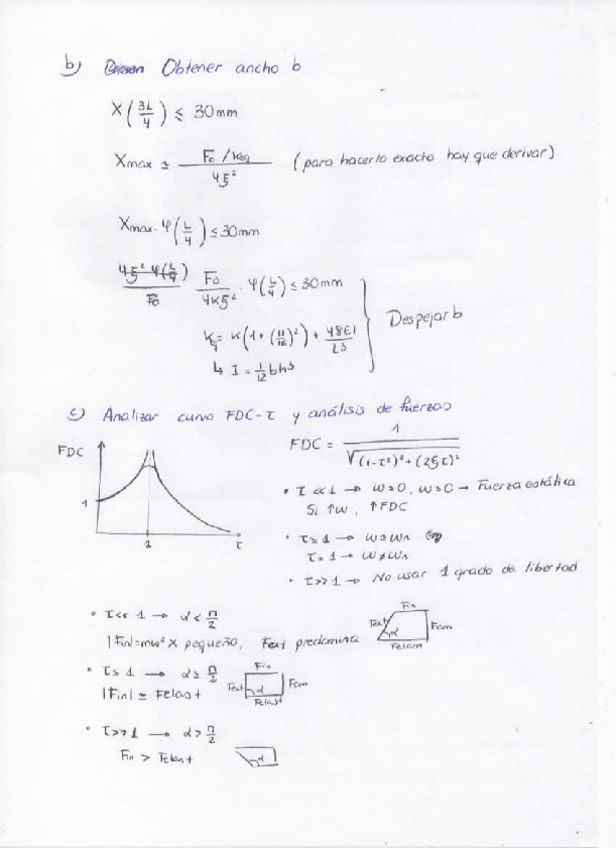 b) Obtener ancho b
X(3L/4) ≤ 30mm
Xmax ≃ (F0/Keq)/(4ξ²) (para hacerlo exacto hay que derivar)
Xmax · φ(L/4) ≤ 30mm
4ξ² φ(L/4)/F0 F0/(4Kξ²) · φ(L/4) ≤ 30mm
K(1 + (11/16)²) + 48EI/L3
↳ I = 1/12 bh³
Despejar b
c) Analizar curva FDC-τ y análisis de fuerzas
FDC
1
1
τ
FDC = 1/√((1-τ²)² + (2ξτ)²)
• τ << 1 → ω≃0, ω=0 → Fuerza estática
Si ↑ω, ↑FDC
• τ≃1 → ω≃ωn
τ=1 → ω≠ωn
• τ>>1 → No usar 1 grado de libertad
• τ<< 1 → α < π/2
|Fin|=mω² X pequeño, Fext predomina
Fin
Fext
α
Fam
Felast
• τ≃1 → α≃π/2
|Fin| ≃ Felast
Fin
Fext
α
Fam
Felast
• τ>>1 → α > π/2
Fin > Felast
α